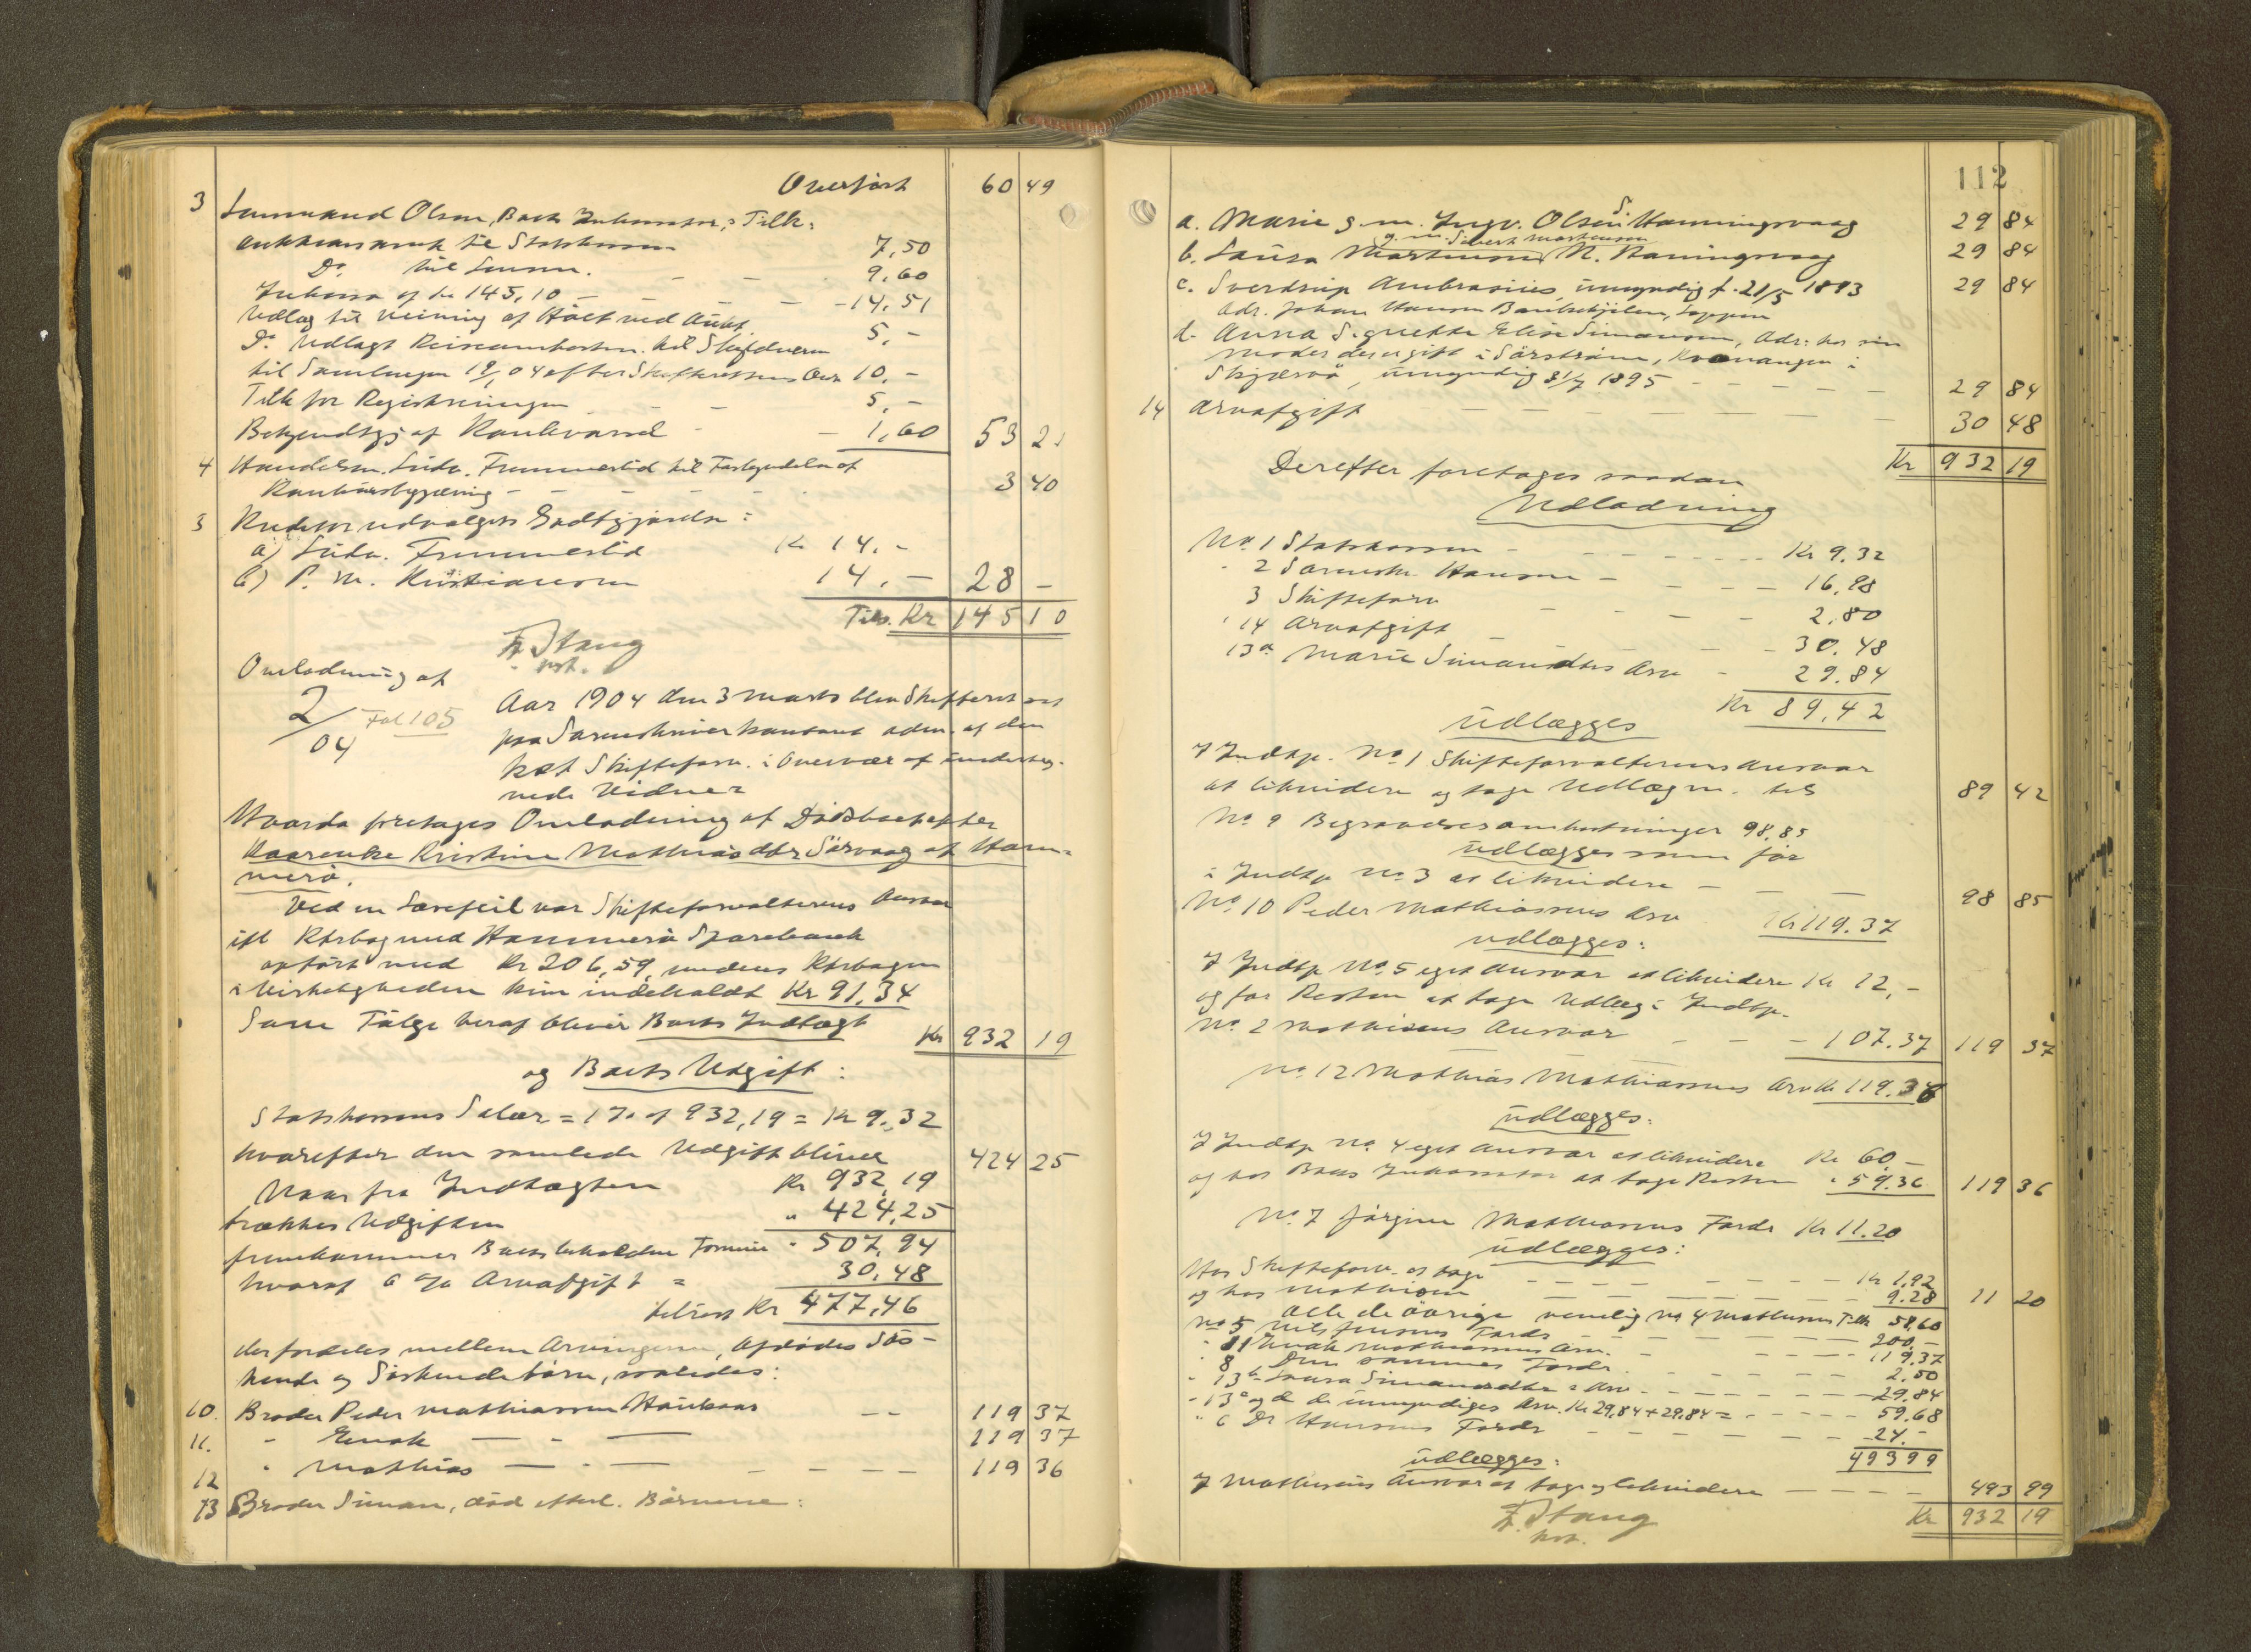 Overført 60 49
3 Lensmand Olsen, Boets Inkassator, s Tilk:
til Statskassen 7,50
Do. til Lensm. - - - 9,60
Inkasso af kr 145,10 - - - 14,51
Udlæg til Veining af Høet ved Aukt. 5,-
Do. Udlagt til
til Samlingen efter Skifterettens 10,-
Tilk for Registreringen - - 5,-
Bekjendtgj af - - 1,60 53 21
4 Handelsm. Frummestid til af
- - - - 3 40
3 Godtgjørelse:
a) Frummestid Kr 14.-
b) P. M. Kristiansen 14.- 28 -
Tils. Kr 145 10
F. Stang
kst.
Omlodning af
2/04 Fol 105
Aar 1904 den 3 Marts blev Skifteret sat
paa Sorenskriverkontoret adm. af den
kst Skifteforv. i Overvær af underteg-
nede Vidner
Hvorda foretages Omlodning af Dødsboet efter
Kaarenke Kristine Mathiasdtr Sørvaag af Ham-
merø.
Ved en Læsefeil var Skifteforvalterens Ansvar
ifl Ktrbog med Hammerø Sparebank
opført med Kr 206,59, medens Ktrbogen
i Virkeligheden kun indeholdt Kr 91,34
Som Følge heraf bliver Boets Indtægt Kr 932 19
og Boets Udgift:
Statskassens Salær = 1 % af 932,19 = Kr 9,32
hvorefter den samlede Udgift bliver 424 25
Naar fra Indtægten Kr 932,19
trækkes Udgiften " 424,25
fremkommer Boets beholdne Formue " 507,94
hvoraf 6 % Arveafgift = 30,48
tilrest Kr 477,46
der fordeles mellem Arvingerne, Afdødes Søs-
kende og Søskendebørn, saaledes:
10. Broder Peder Mathiassen - - 119 37
11. " Enok - " - 119 37
12 " Mathias - " - - - - - 119 36
13 Broder Siman, død efterl. Børnene:
112
a. Marie g. m. Ingv. Olsen S. Honningsvaag 29 84
g. m. Sivert Martinsen
b. Laura Martinsen N. Honingsvaag 29 84
c. Sverdrup Ambrosius, umyndig f. 21/5 1893 29 84
Adr. Johan Hansen Loppen
d. Anna Signette Elise Simonsen, Adr: hos sin
Moder der er gift i Sørstrømn, Kvænangen i
Skjærvø, umyndig 31/7 1895 - - - - - 29 84
14 Arveafgift - - - - - - 30 48
Kr 932 19
Derefter foretages saadan
Udlodning
No. 1 Statskassen - - - - - - Kr 9.32
" 2 Sorenskr. Hansen - - - - 16,98
3 Skifteforv - - - - 2,80
" 14 Arveafgift - - - 30.48
13a Marie Simonsdtrs Arv - 29.84
Kr 89,42
Udlægges
I Indtp. No. 1 Skifteforvalterens Ansvar
at likvidere og tage Udlægn. tils 89 42
No. 9 Begravelsesomkostninger 98.85
udlægges som før
i Indtp No. 3 at likvidere - - - 98 85
No. 10 Peder Mathiassens Arv Kr 119.37
udlægges:
I Indtp No. 5 eget Ansvar at likvidere Kr 12,-
og for Resten at tage Udlæg i Indtp.
No. 2 Ansvar - - - 107.37 119 37
No. 12 Mathias Mathiassens Arv Kr 119.36
udlægges:
I Indtp No. 4 eget Ansvar at likvidere Kr 60,-
og hos Boets Inkassator at tage Resten " 59.36 119 36
No. 7 Jørgine Mathiasens Fordr Kr 11.20
udlægges:
Hos Skifteforv. at tage - - - - - Kr 1,92
og hos - - - - - 9.28 11 20
Alle de øvrige nemlig No. 4 Tilk 58,60
No. 5 Nils Jensens Fordr - - - - 200.-
" 11 Enok Mathiassens Arv. - - - - 119.37
" 8 Den sammes Fordr. - - - - 2,50
" 13b Laura Simonsdtrs Arv - - - - - 29,84
" 13c og d de umyndiges Arv. Kr 29,84 + 29.84 = - - - - 59.68
" 6 Dr Hansens Fordr - - - - - 24.-
493 99
udlægges:
I Ansvar at tage og likvidere - - - - 493 99
Kr 932 19
F. Stang
kst.